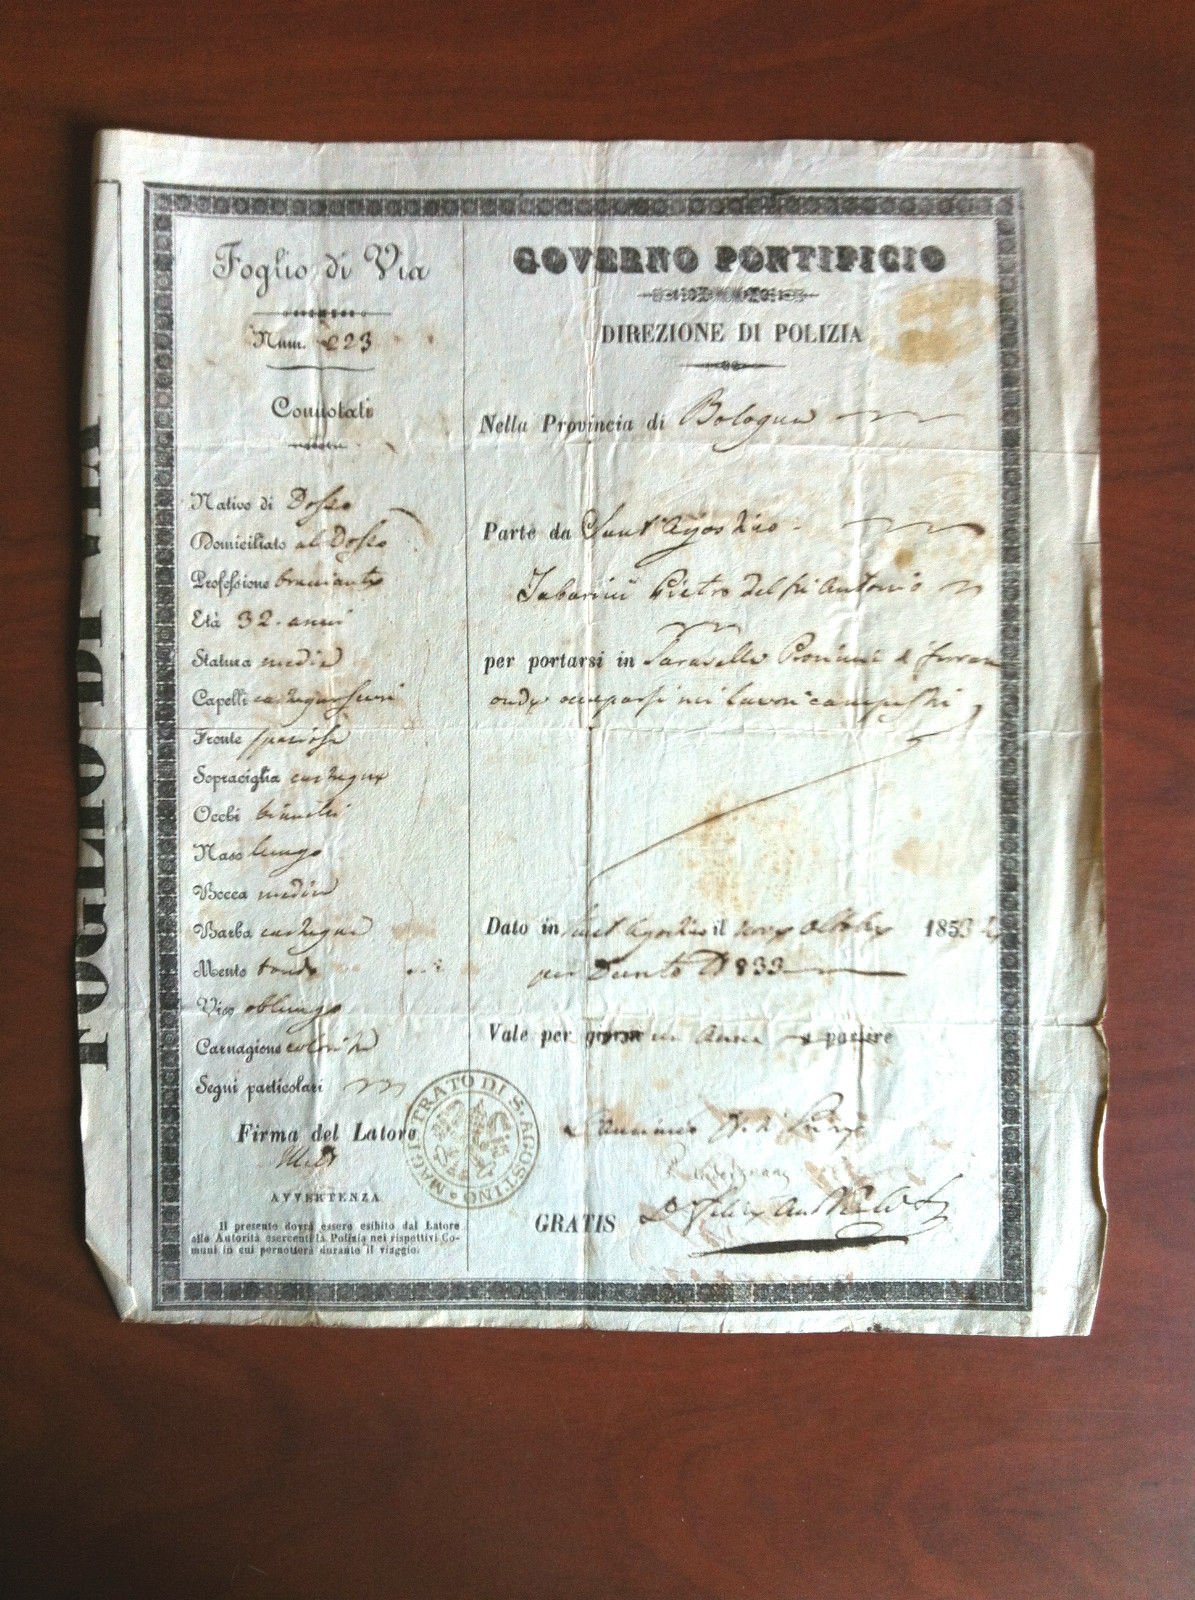 FOGLIO DI VIA
Foglio di Via
Num. 223
Connotati
Nativo di Dosso
Domiciliato al Dosso
Professione bracciante
Età 32. anni
Statura media
Capelli castagni scuri
Fronte spaziosa
Sopraciglia castagne
Occhi
Naso lungo
Bocca media
Barba castagna
Mento tondo
Viso oblungo
Carnagione colorita
Segni particolari
Firma del Latore
AVVERTENZA
Il presente dovrà essere esibito dal Latore
alle Autorità esercenti la Polizia nei rispettivi Co-
muni in cui pernotterà durante il viaggio.
MAGISTRATO DI S. AGOSTINO
GOVERNO PONTIFICIO
DIREZIONE DI POLIZIA
Nella Provincia di Bologna
Parte da Sant'Agostino
Tabarini Pietro del fu Antonio
per portarsi in
onde occuparsi nei lavori campestri
Dato in Sant'Agostino il Ottobre 1853
Vale per giorni un anno a partire
GRATIS